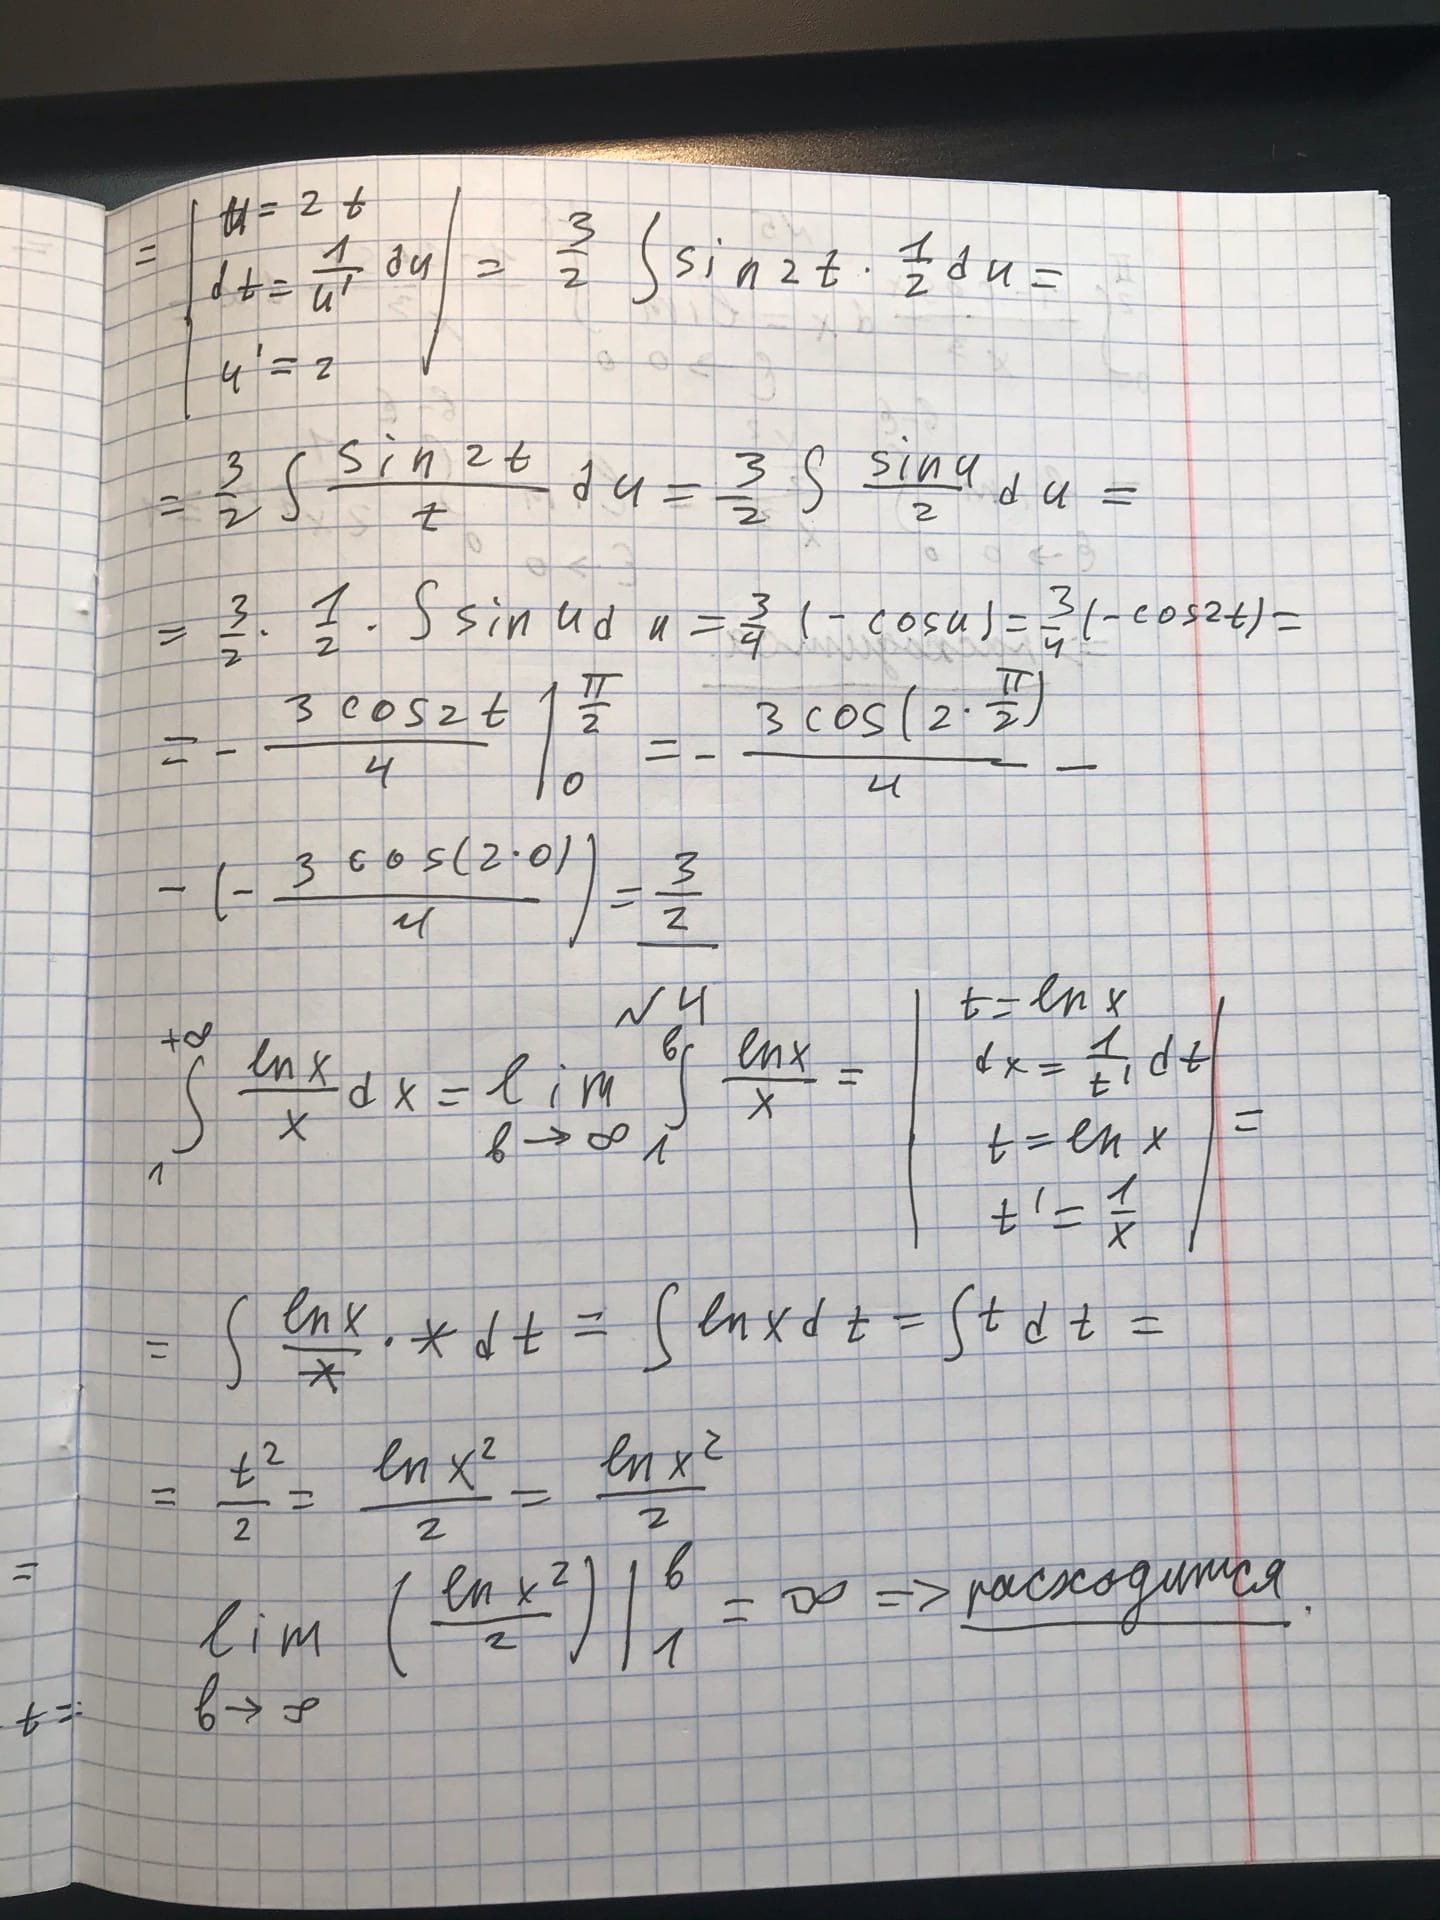 = | u = 2t
dt = 1/u' du
u' = 2 | = 3/2 ∫ sin2t · 1/2 du =
= 3/2 ∫ sin2t/t du = 3/2 ∫ sinu/2 du =
= 3/2 · 1/2 · ∫ sinu du = 3/4 (-cosu) = 3/4 (-cos2t) =
= - 3cos2t/4 |₀^(π/2) = - 3cos(2·π/2)/4 -
- (- 3cos(2·0)/4) = 3/2
√4
∫₁^(+∞) lnx/x dx = lim b→∞ ∫₁^b lnx/x = | t = lnx
dx = 1/t' dt
t = lnx
t' = 1/x | =
= ∫ lnx/x · x dt = ∫ lnx dt = ∫ t dt =
= t²/2 = lnx²/2 = lnx²/2
=
lim b→∞ (lnx²/2) |₁^b = ∞ => расходится.
t =